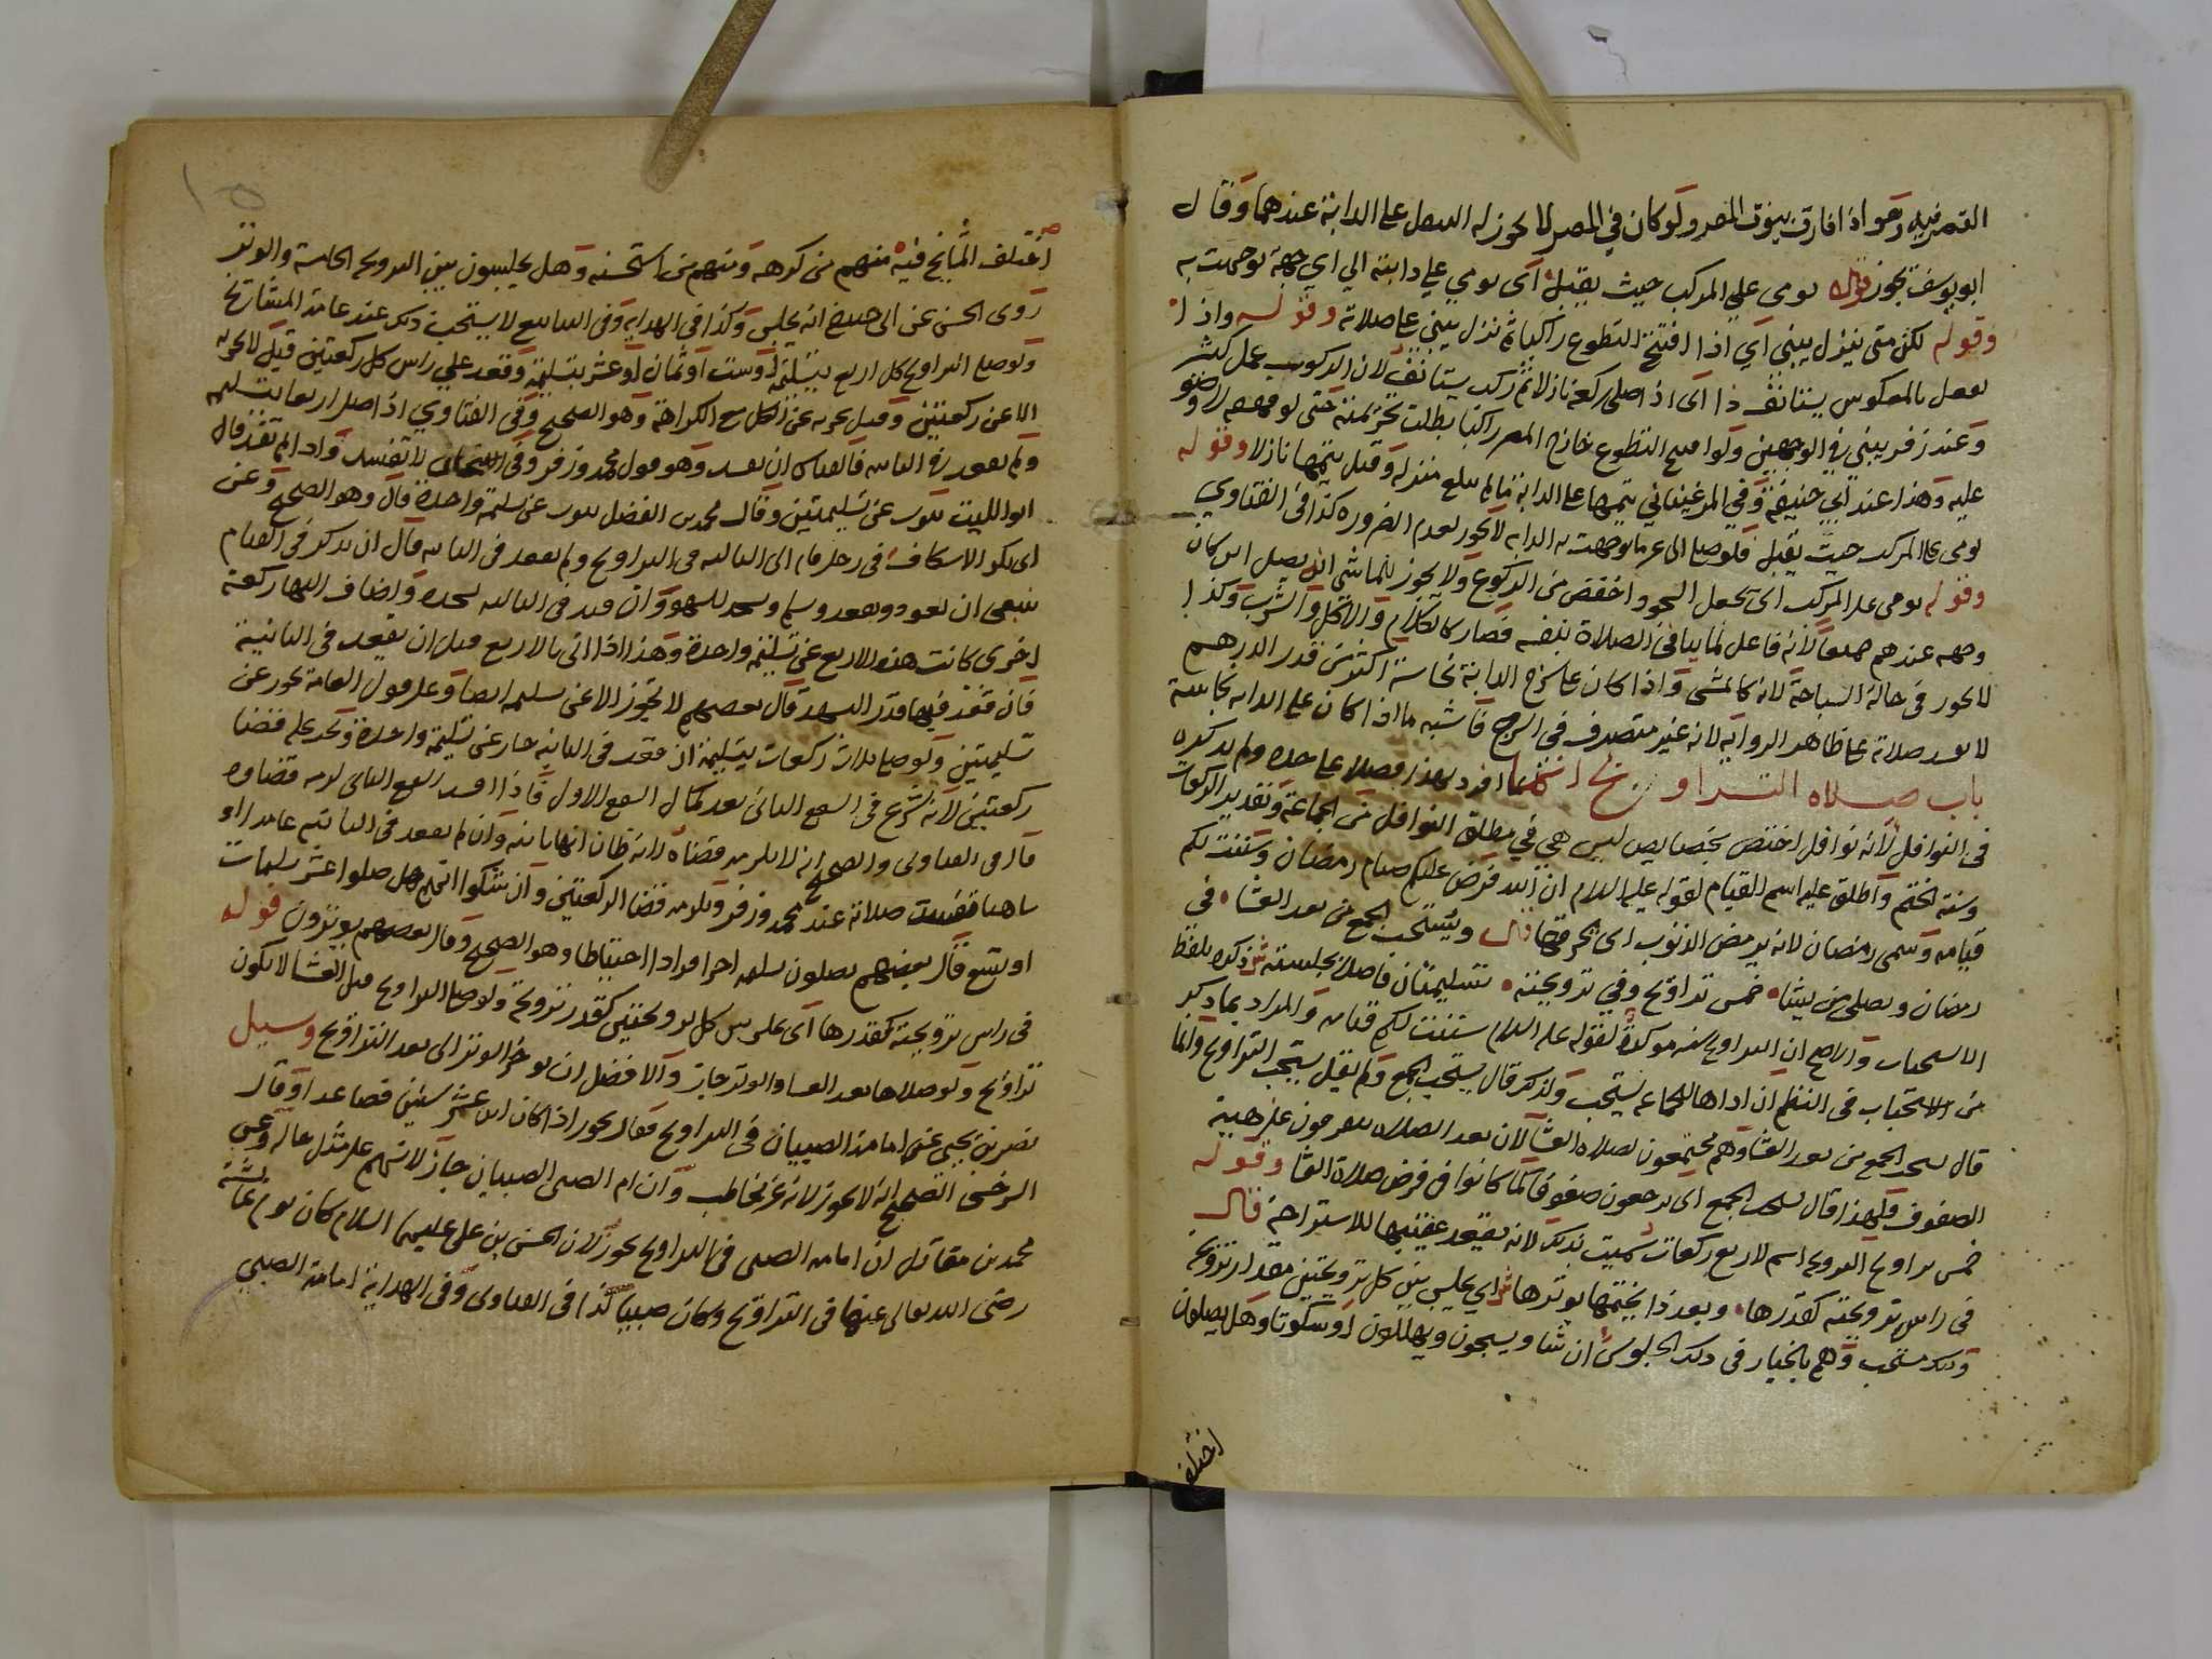 القصر فيه وهو اذا فارق بيوت المصر ولو كان في المصر لا يجوز له التنفل على الدابة عندهما وقال
ابو يوسف يجوز قال يومي على المركب حيث يقبل اى يومي على دابته الى اي جهة توجهت به
وقوله لكن متى ينزل يبني اي اذا افتتح التطوع راكبا ثم نزل يبني على صلاته وقوله واذا
يفعل بالمعكوس يستانف ذا اى اذا صلى ركعة نازلا ثم ركب يستانف لان الركوب عمل كثير
وعند زفر يبني في الوجهين ولو افتتح التطوع خارج المصر راكبا بطلت تحريمته حتى لو قهقه لا وضو
عليه وهذا عند ابي حنيفة وفي المرغيناني يتمها على الدابة ما لم يبلغ منزله وقيل يتمها نازلا وقوله
يومي على المركب حيث يقبل فلو صلى الى غير ما توجهت به الدابه لا يجوز لعدم الضروره كذا في الفتاوي
وقوله يومي على المركب اى يجعل السجود اخفض من الركوع ولا يجوز للماشي ان يصلي اين كان
وجهه عندهم جميعا لانه فاعل لما ينافي الصلاة بنفسه فصار كالكلام والاكل والشرب وكذا
لا يجوز في حالة السباحة لانه كالمشي واذا كان على سرج الدابة نجاسة اكثر من قدر الدرهم
لا يفسد صلاته على ظاهر الروايه لانه غير متصرف في السرج فاشبه ما اذا كان على الدابه نجاسة
باب صلاه التراويح انما افرد لهذا فصلا على حده ولم يذكره
في النوافل لانه نوافل اختص بخصايص ليس هي في مطلق النوافل من الجماعة وتقدير الركعات
وسنة الختم واطلق عليه اسم القيام لقوله عليه السلام ان الله فرض عليكم صيام رمضان وسننت لكم
قيامه وسمي رمضان لانه يرمض الذنوب اى يحرقها قال ويستحب الجمع من بعد العشا في
رمضان ويصلي من يشا خمس تراويح وفي ترويحته تسليمتان فاصلا بجلسته ش ذكره بلفظ
الاستحباب والاصح ان التراويح سنه موكدة لقوله عليه السلام سننت لكم قيامه والمراد بما ذكر
من الاستحباب في النظم ان اداها بالجماعه يستحب ولذكر قال يستحب الجمع ولم يقل يستحب التراويح وانما
قال يستحب الجمع من بعد العشا وهم مجتمعون لصلاه العشا لان بعد الصلاه يتفرقون عن هيبة
الصفوف فلهذا قال يستحب الجمع اى يرجعون صفوفا كما كانوا في فرض صلاة العشا وقوله
خمس تراويح الترويحه اسم لاربع ركعات سميت بذلك لانه يقعد عقيبها للاستراحة قال
في راس ترويحته كقدرها وبعد ذا يختمها بوترها ش اي يجلس بين كل ترويحتين مقدار ترويحة
وذلك مستحب وهم بالخيار في ذلك الجلوس ان شاو يسبحون ويهللون او سكوتا وهل يصلون
اختلف
١٥
اختلف المشايخ فيه منهم من كرهه ومنهم من استحسنه وهل يجلسون بين الترويحه الخامسة والوتر
روى الحسن عن ابي حنيفة انه يجلس وكذا في الهدايه وفي الينابيع لا يستحب ذلك عند عامة المشايخ
ولو صلى التراويح كل اربع بتسليمة او ست او ثمان او عشر بتسليمة وقعد على راس كل ركعتين قيل لا يجزيه
الا عن ركعتين وقيل يجزيه عن الكل مع الكراهة وهو الصحيح وفي الفتاوي اذا صلى اربعا بتسليمه
ولم يقعد في الثانيه فالقياس ان يفسد وهو قول محمد وزفر وفي الاستحسان لا تفسد واذا لم تفسد قال
ابو الليث ينوب عن تسليمتين وقال محمد بن الفضل ينوب عن تسليمة واحدة قال وهو الصحيح وعن
ابي بكر الاسكاف في رجل قام الى الثالثه في التراويح ولم يقعد في الثانيه قال ان تذكر في القيام
ينبغي ان يعود ويقعد ويسلم ويسجد للسهو وان قيد في الثالثه بسجده واضاف اليها ركعة
اخرى كانت هذه الاربع عن تسليمة واحدة وهذا اذا اتى بالاربع قبل ان يقعد في الثانية
فان قعد فيها قدر التشهد قال بعضهم لا تجوز الا عن تسليمه ايضا وعلى قول العامة تجوز عن
تسليمتين ولو صلى ثلاث ركعات بتسليمة ان قعد في الثانيه جاز عن تسليمة واحدة وتجب عليه قضا
ركعتين لانه شرع في الشفع الثاني بعد كمال الشفع الاول فاذا افسد الشفع الثاني لزمه قضاوه
قال في الفتاوى والصحيح انه لا يلزمه قضاه لانه ظان انها ثانيه وان لم يقعد في الثانيه عامدا او
ساهيا فسدت صلاته عند محمد وزفر ويلزمه قضا الركعتين وان شكوا انهم هل صلوا عشر تسليمات
او تسع قال بعضهم يصلون تسليمه اخرى فرادا احتياطا وهو الصحيح وقال بعضهم يوترون قوله
في راس ترويحته كقدرها اى على راس كل ترويحتين كقدر ترويحة ولو صلى التراويح قبل العشا لا تكون
تراويح ولو صلاها بعد العشا والوتر جاز والافضل ان يوخر الوتر الى بعد التراويح وسيل
نصر بن يحيى عن امامة الصبيان في التراويح فقال يجوز اذا كان ابن عشر سنين فصاعدا وقال
السرخسي الصحيح انه لا يجوز لانه غير مخاطب وان ام الصبي الصبيان جاز لانهم على مثل حاله وعن
محمد بن مقاتل ان امامه الصبي في التراويح تجوز لان الحسن بن علي عليهما السلام كان يوم عائشة
رضى الله تعالى عنها في التراويح وكان صبيا كذا في الفتاوى وفي الهداية امامة الصبي